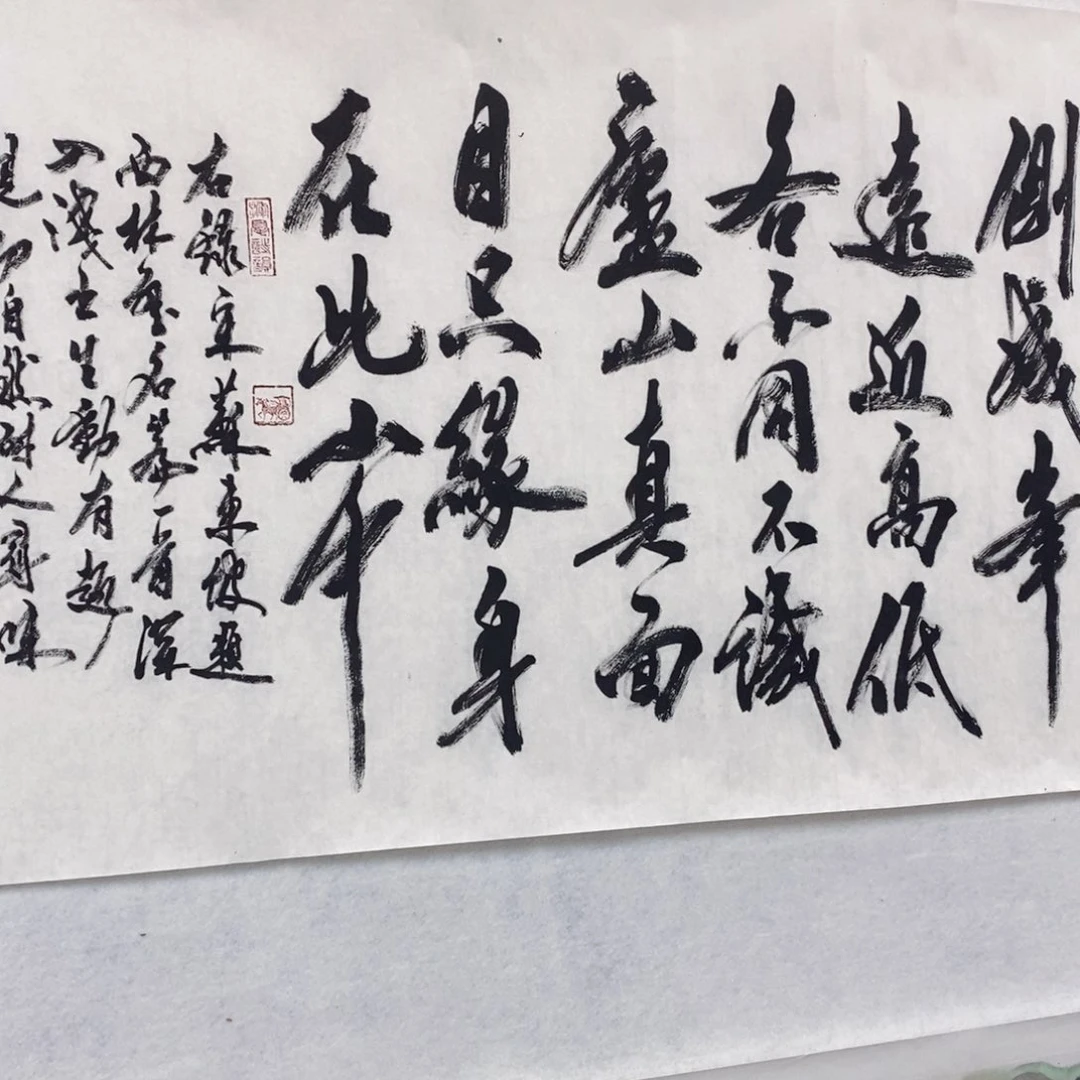 側成峯
遠近高低
各不同不識
廬山真面
目只緣身
在此山中
右錄宋蘇東坡題
西林壁名篆一首深
入淺出生動有趣
自然耐人尋味